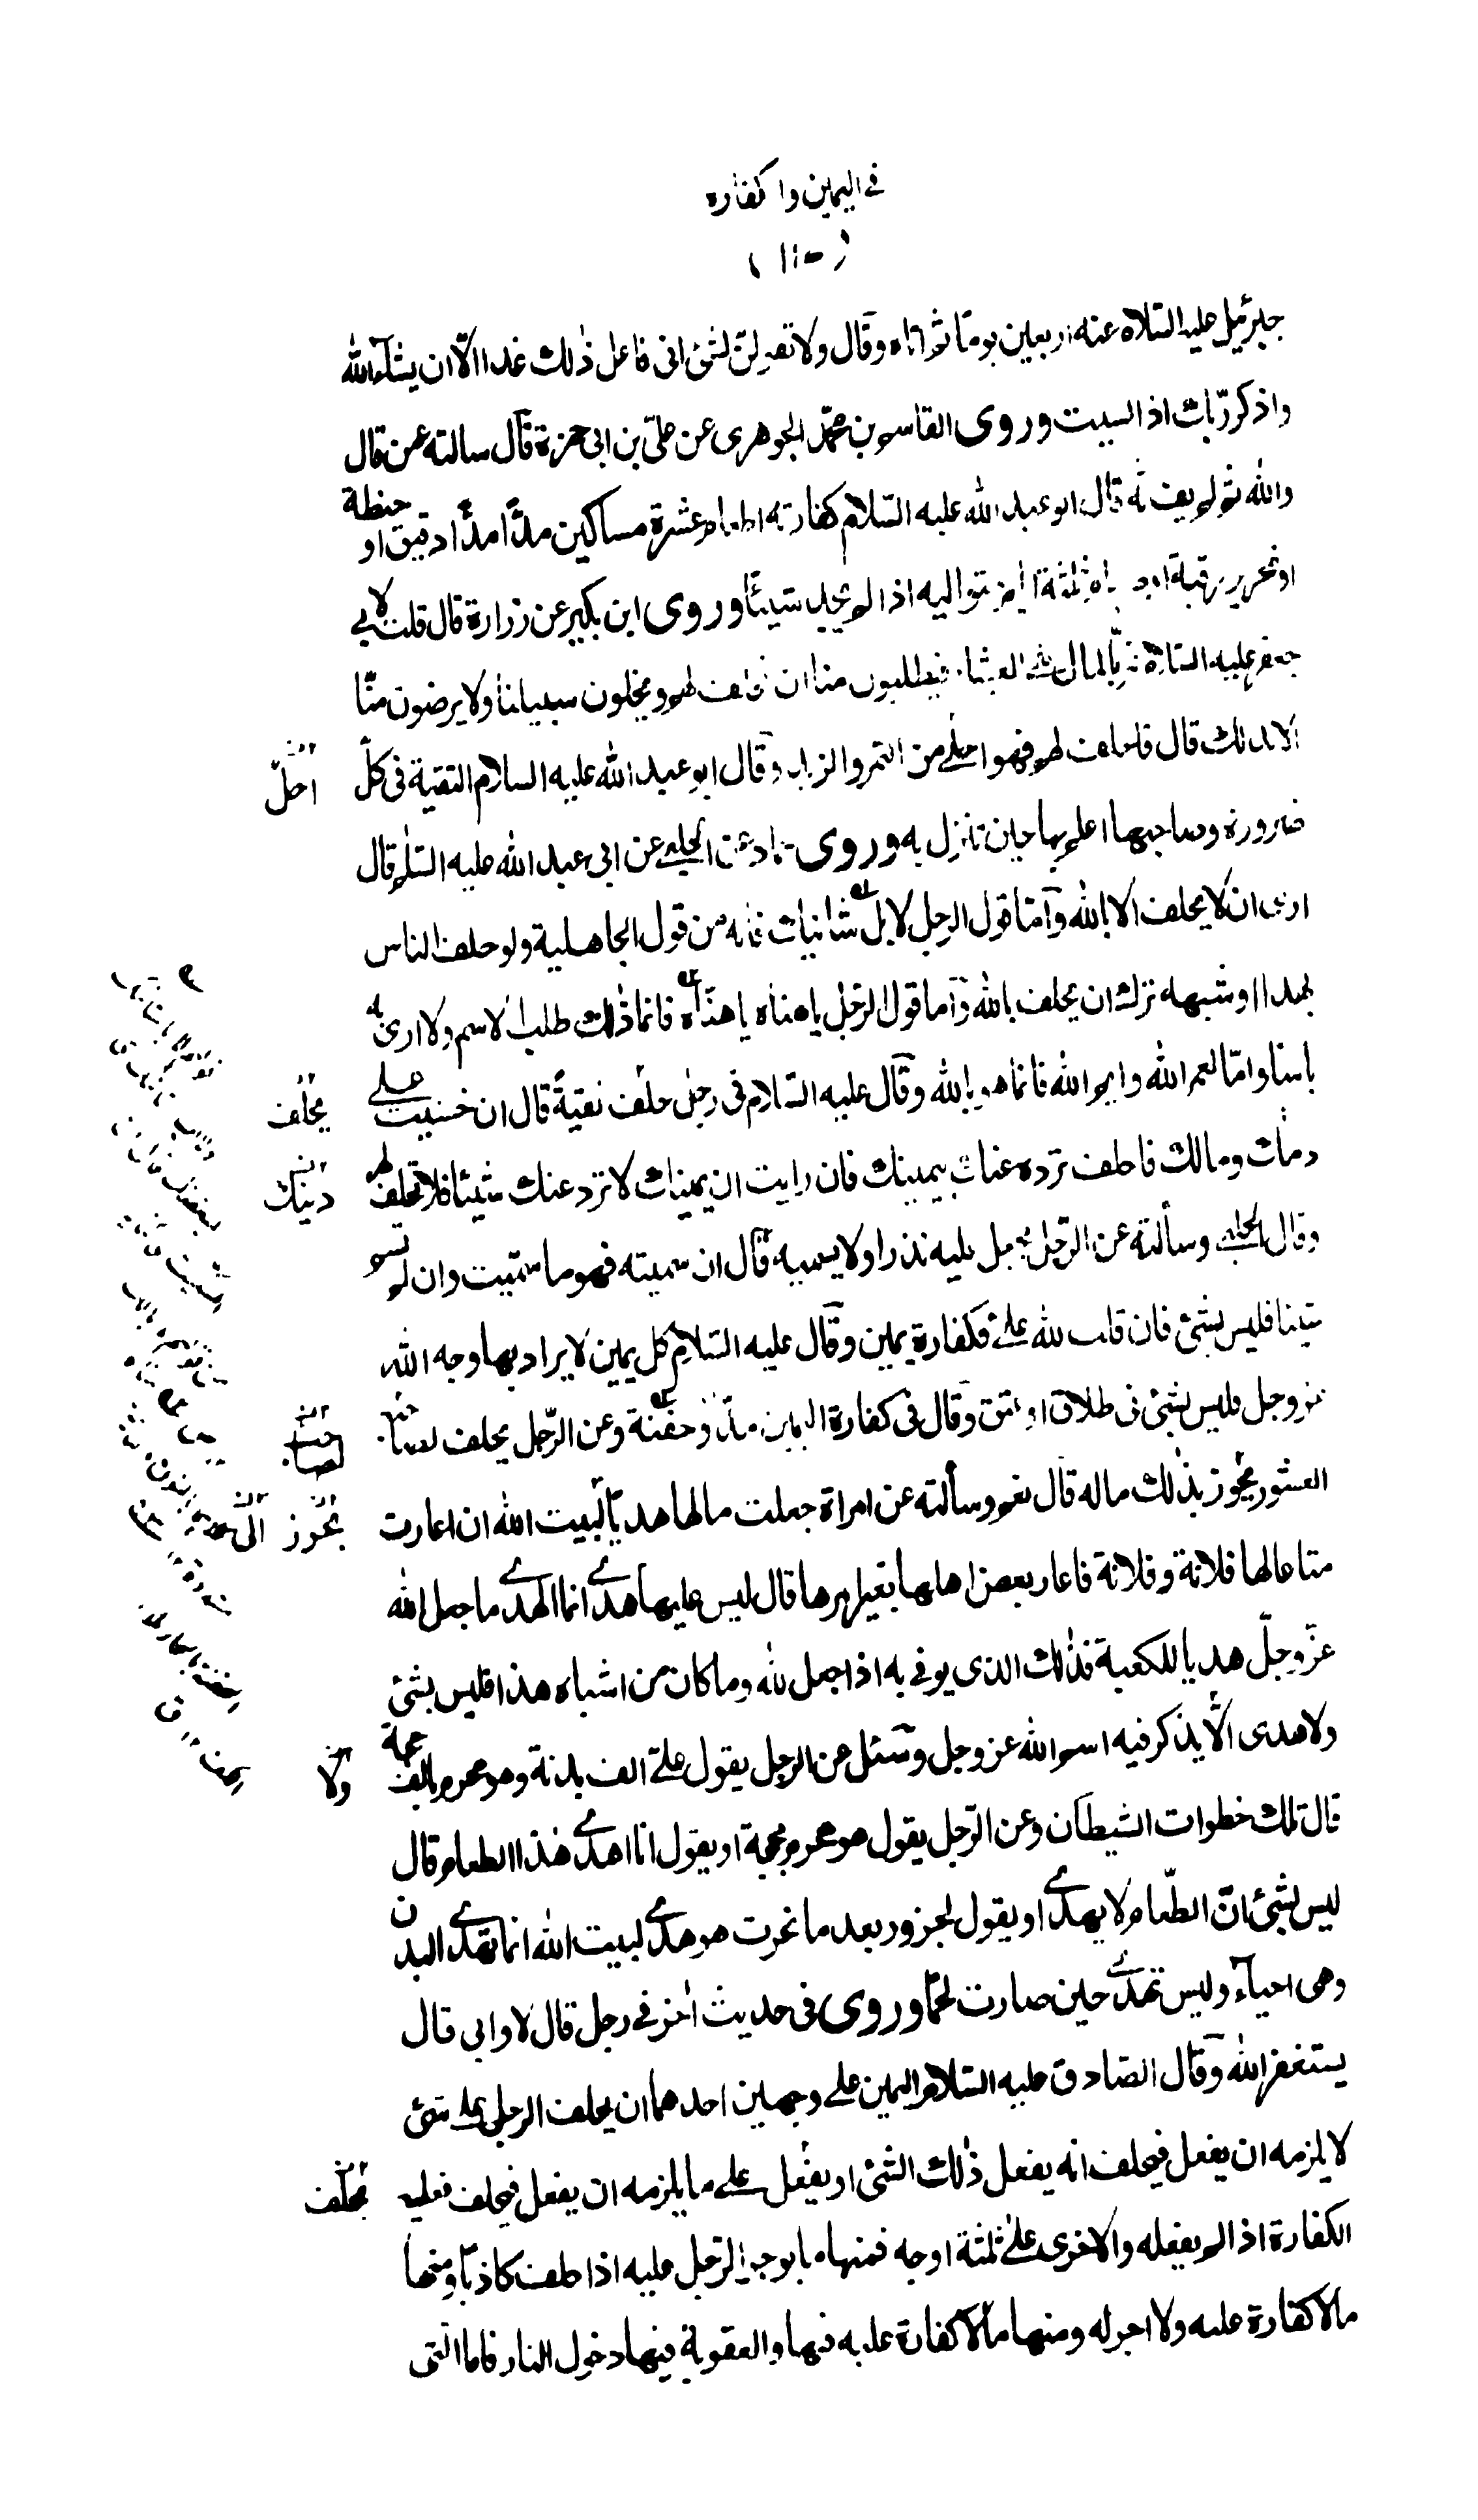 في اليمين والكفاره
(١١٥)
جبرئيل عليه السلام عنه اربعين يوما ثم اتاه وقال ولا تقولن لشئ اني فاعل ذلك غدا الا ان يشاء الله
واذكر ربك اذا نسيت وروى القاسم بن محمد الجوهري عن علي بن ابي حمزة قال سالته عمن قال
والله ثم لم يف له قال ابو عبد الله عليه السلام كفارته اطعام عشرة مساكين مدا مدا دقيق او حنطة
او تحرير رقبة او صيام ثلثة ايام متواليه اذا لم يجد شيئا وروى ابن بكير عن زرارة قال قلت لابي
جعفر عليه السلام نمر بالمال على العشار فيطلبون منا ان نحلف لهم ويخلون سبيلنا ولا يرضون منا
الا بذلك قال فاحلف لهم فهو احلى من التمر والزبد وقال ابو عبد الله عليه السلام التقية في كل
احل
ضرورة وصاحبها اعلم بها حين تنزل به وروى حماد عن الحلبي عن ابي عبد الله عليه السلم قال
ارى ان لا يحلف الا بالله وأما قول الرجل لا بل شانيك فانه من قول الجاهلية ولو حلف الناس
بهذا او شبهه ترك ان يحلف بالله وأما قول الرجل ياهناه ياهذاه فانما ذلك طلب الاسم ولا ارى به
باسا واما لعمر الله وايم الله فانما هو بالله وقال عليه السلام في رجل حلف تقية قال ان خشيت على
يحلف
دمك ومالك فاحلف ترده عنك بيمينك فان رايت ان يمينك لا ترد عنك شيئا فلا تحلف لهم
دينك
وقال الحلبي وسألته عن الرجل يجعل عليه نذرا ولا يسميه قال ان سميته فهو ما سميت وان لم تسم
شيئا فليس بشئ فان قلت لله علي فكفارة يمين وقال عليه السلام كل يمين لا يراد بها وجه الله
عز وجل فليس بشئ في طلاق او عتق وقال في كفارة اليمين مد وحفنة وعن الرجل يحلف لصاحب
العشور يحوز بذلك ماله قال نعم وسألته عن امراة جعلت مالها هديا لبيت الله ان اعارت
متاعا لها فلانة وفلانة فاعار بعض اهلها بغير امرها قال ليس عليها هدي انما الهدي ما جعل الله
عز وجل هديا للكعبة فذلك الذي يوفي به اذا جعل لله وما كان من اشباه هذا فليس بشئ
ولا هدى الا بذكر فيه اسم الله عز وجل وسئل عن الرجل يقول علي الف بدنة وهو محرم بالف حجة
ولا
قال تلك خطوات الشيطان وعن الرجل يقول هو محرم بحجة او يقول انا اهدي هذا الطعام قال
ليس بشئ ان الطعام لا يهدي او يقول لجزور بعد ما نحرت هو هدي لبيت الله انما تهدي البدن
وهي احياء وليس تهدي حين صارت لحما وروى في حديث اخر في رجل قال لا وابي قال
يستغفر الله وقال الصادق عليه السلام اليمين على وجهين احدهما ان يحلف الرجل على شئ
لا يلزمه ان يفعل فيحلف انه يفعل ذلك الشئ او يفعل على ما يلزمه ان يفعل فيحلف فعليه
يحلف
الكفارة اذا لم يفعله والاخرى على ثلثة اوجه فمنها ما يوجر الرجل عليه اذا حلف كاذبا ومنها
مالا كفارة عليه ولا اجر له ومنها مالا كفارة عليه فيها والعقوبة فيها دخول النار فاما التي